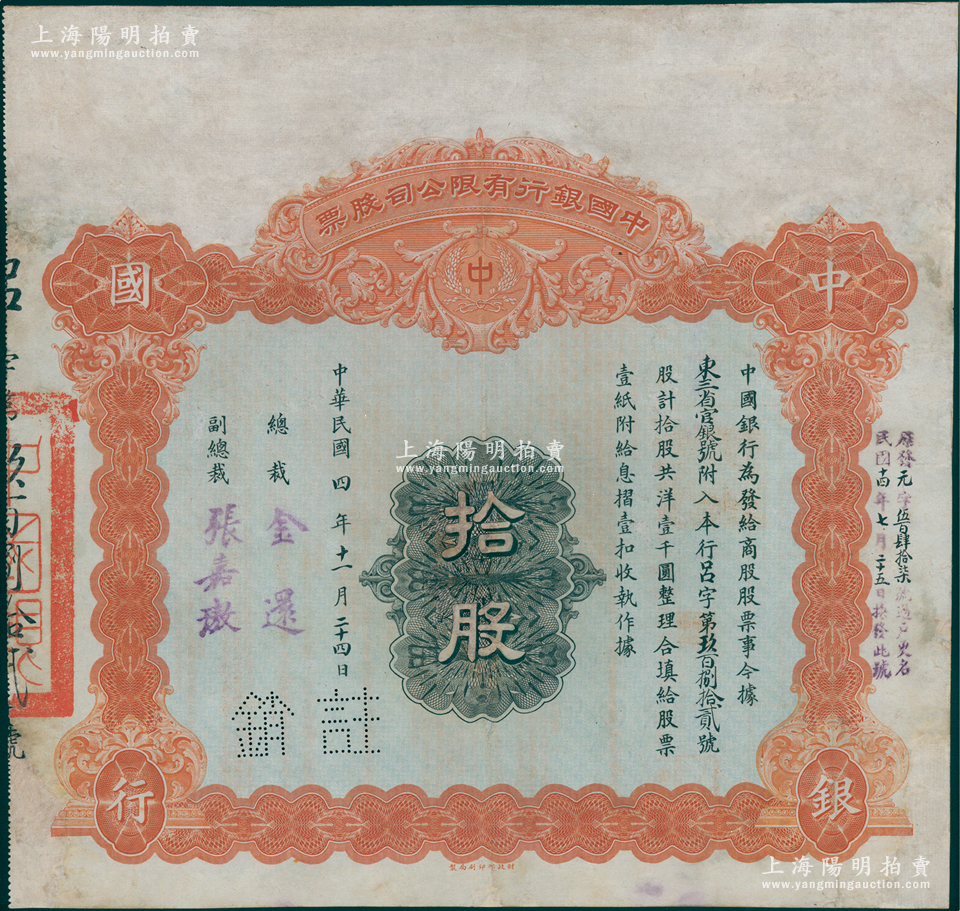 上海陽明拍賣
www.yangmingauction.com
上海陽明拍賣
www.yangmingauction.com
中國銀行有限公司股票
中
中
國
銀
行
元字伍百肆拾柒號過戶更名
民國十四年七月二十五日掉發此號
中國銀行為發給商股股票事今據
東三省官銀號附入本行呂字第玖百捌拾貳號
股計拾股共洋壹千圓整理合填給股票
壹紙附給息摺壹扣收執作據
拾股
中華民國四年十一月二十四日
總裁 金還
副總裁 張嘉璈
註銷
呂字第玖百捌拾貳號
財政部印刷局製
上海陽明拍賣
www.yangmingauction.com
上海陽明拍賣
www.yangmingauction.com